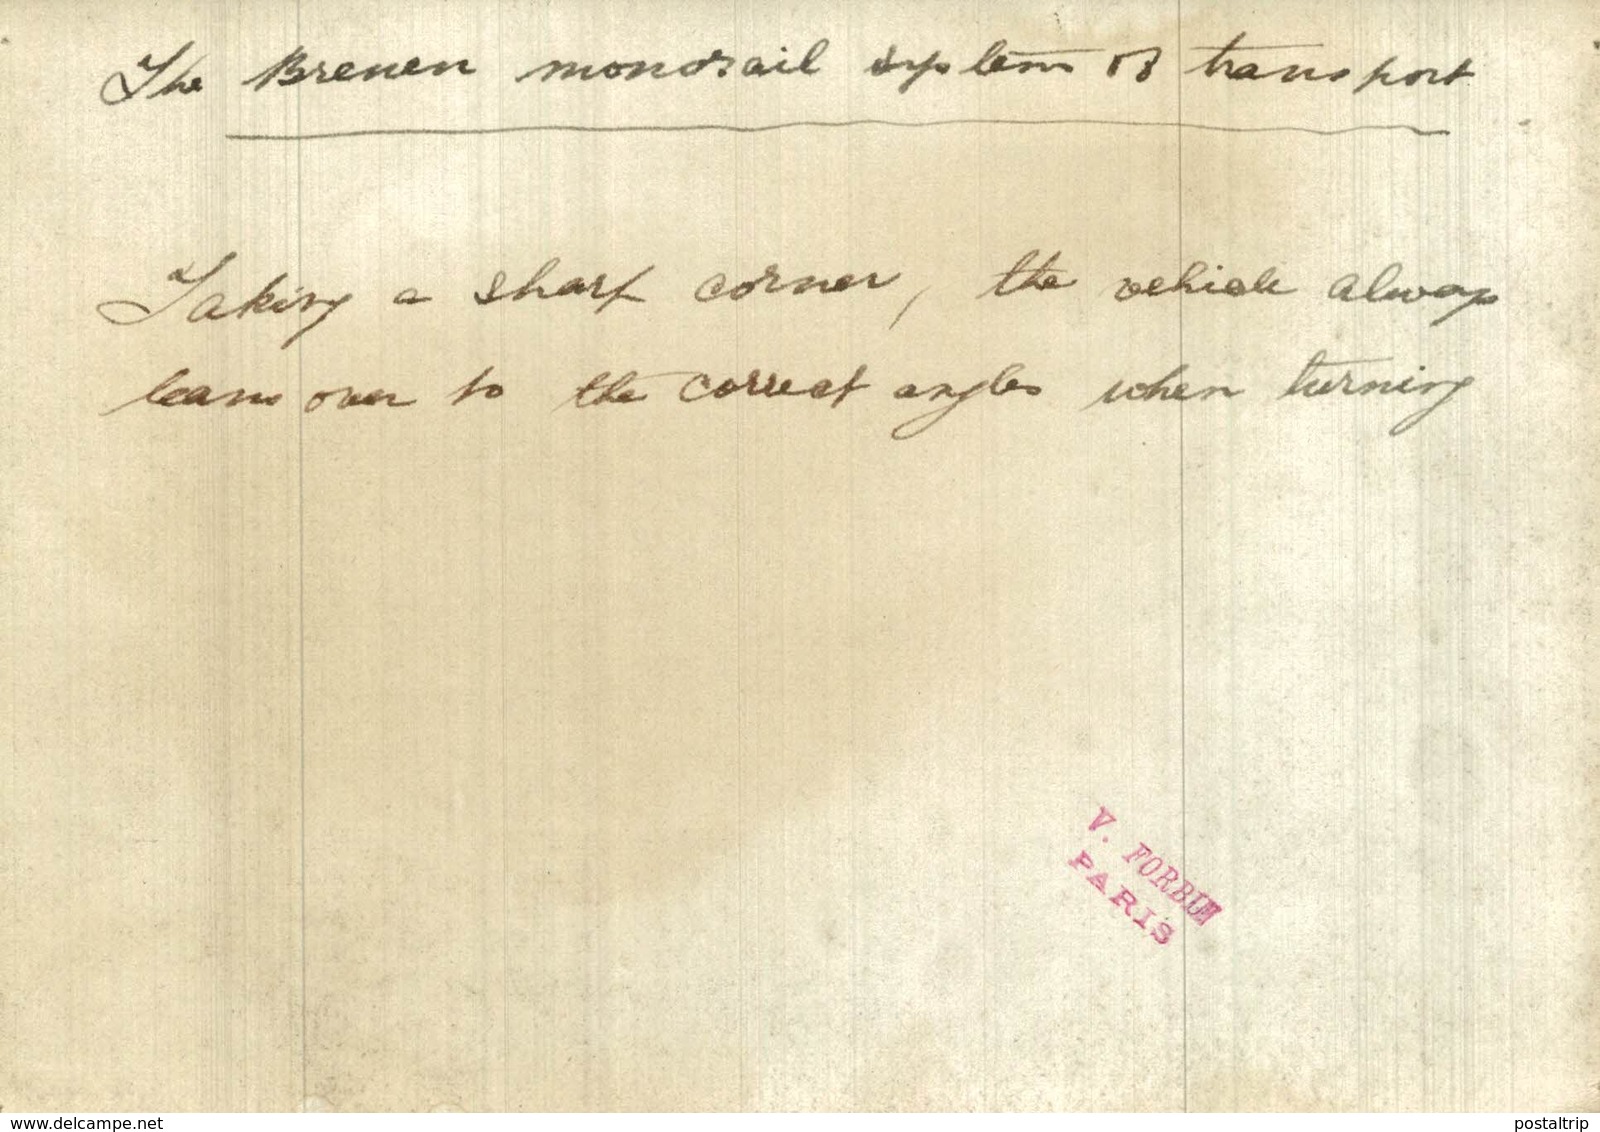 The Brenen monorail system of transport
Taking a sharp corner, the vehicle always
leans over to the correct angles when turning
V. FORBIN
PARIS
delcampe.net
postaltrip